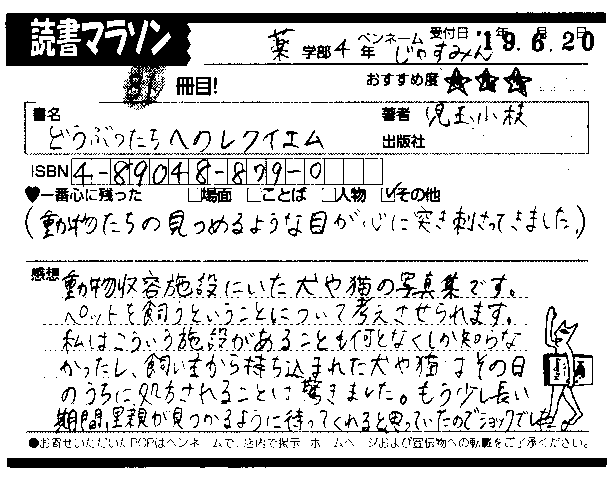 読書マラソン
薬 学部 4 年 ペンネーム じゃすみん 受付日 '19.6.20
81 冊目! おすすめ度 ★★★
書名 どうぶつたちへのレクイエム
著者 児玉小枝
出版社
ISBN 4-89048-899-0
♥一番心に残った □場面 □ことば □人物 ☑その他
(動物たちの見つめるような目が心に突き刺さってきました。)
感想 動物収容施設にいた犬や猫の写真集です。
ペットを飼うということについて考えさせられます。
私はこういう施設があることも何となくしか知らな
かったし、飼い主から持ち込まれた犬や猫はその日
のうちに処分されることに驚きました。もう少し長い
期間、里親が見つかるように待ってくれると思っていたのでショックでした。
●お寄せいただいたPOPはペンネームで、店内で掲示・ホームページおよび宣伝物への転載をご了承ください。